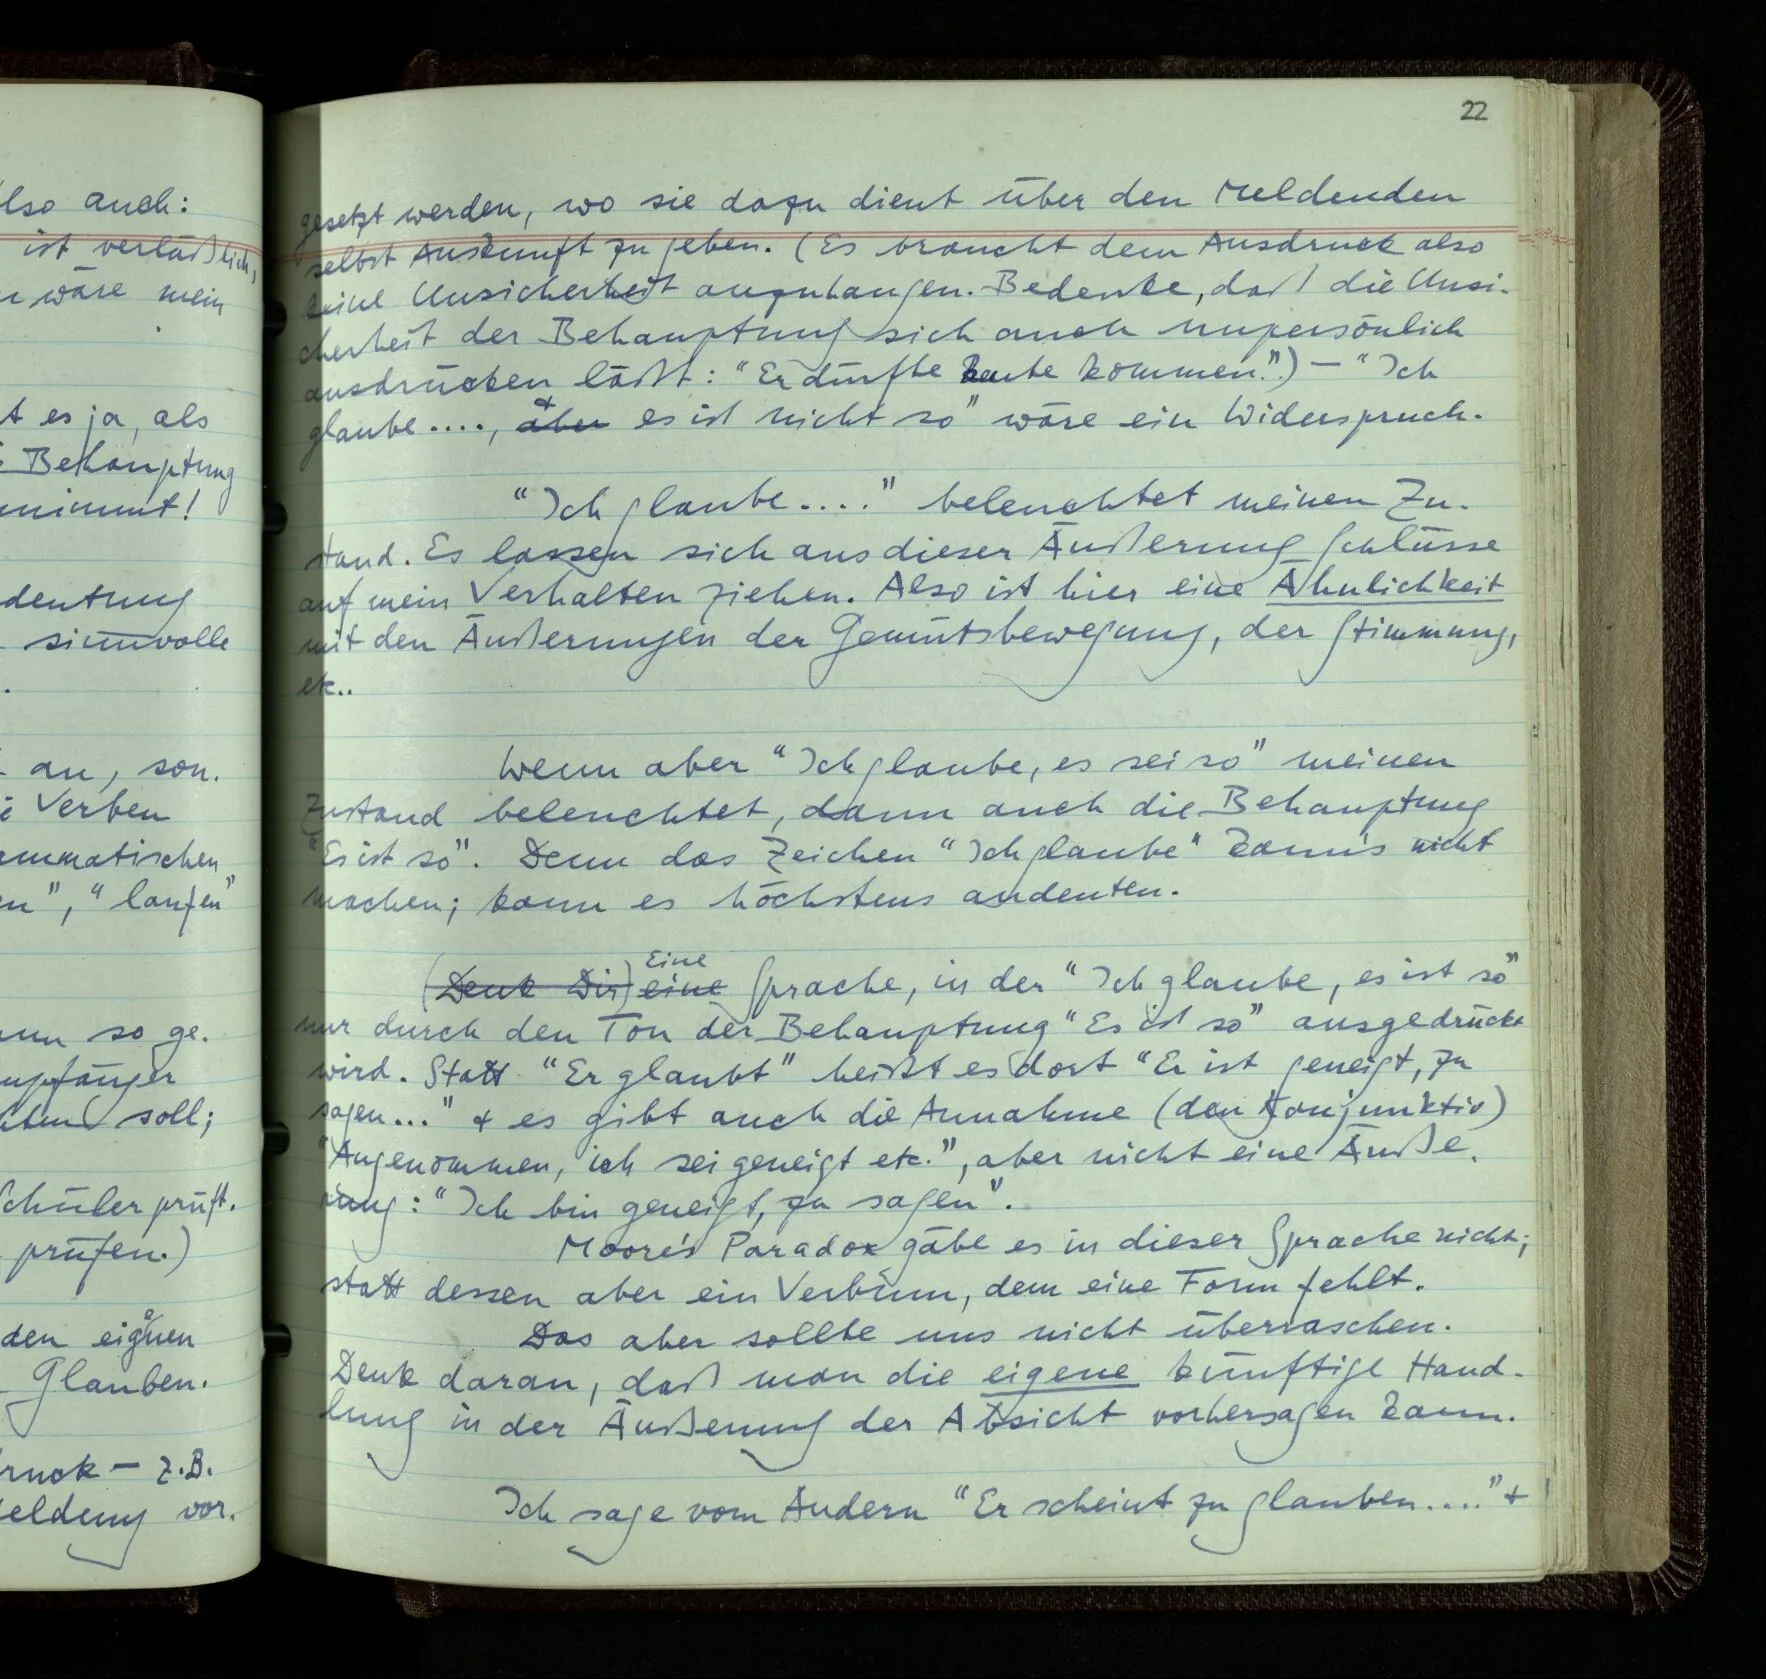 lso auch:
ist verläßlich,
wäre mein
t es ja, als
Behauptung
nimmt!
deutung
sinnvolle
an, son-
Verben
ammatischen
en", "laufen"
nn so ge-
mpfänger
soll;
Schüler prüft.
prüfen.)
den eignen
Glauben.
ruck – z.B.
eldung vor.
22
gesetzt werden, wo sie dazu dient über den Meldenden
selbst Auskunft zu geben. (Es braucht dem Ausdruck also
keine Unsicherheit anzuhangen. Bedenke, daß die Unsi-
cherheit der Behauptung sich auch unpersönlich
ausdrücken läßt: "Er dürfte heute kommen.") – "Ich
glaube ...., aber & es ist nicht so" wäre ein Widerspruch.
"Ich glaube ...." beleuchtet meinen Zu-
stand. Es lassen sich aus dieser Äußerung Schlüsse
auf mein Verhalten ziehen. Also ist hier eine Ähnlichkeit
mit den Äußerungen der Gemütsbewegung, der Stimmung,
etc..
Wenn aber "Ich glaube, es sei so" meinen
Zustand beleuchtet, dann auch die Behauptung
"Es ist so". Denn das Zeichen "Ich glaube" kann's nicht
machen; kann es höchstens andeuten.
(Denk Dir) eine Eine Sprache, in der "Ich glaube, es ist so"
nur durch den Ton der Behauptung "Es ist so" ausgedrückt
wird. Statt "Er glaubt" heißt es dort "Er ist geneigt, zu
sagen..." & es gibt auch die Annahme (den Konjunktiv)
"Angenommen, ich sei geneigt etc.", aber nicht eine Äuße-
rung: "Ich bin geneigt, zu sagen".
Moore's Paradox gäbe es in dieser Sprache nicht;
statt dessen aber ein Verbum, dem eine Form fehlt.
Das aber sollte uns nicht überraschen.
Denk daran, daß man die eigene künftige Hand-
lung in der Äußerung der Absicht vorhersagen kann.
Ich sage vom Andern "Er scheint zu glauben...." &